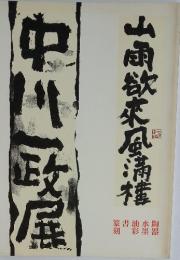 山雨欲來風満楼
陶器
水墨
油彩
書
篆刻
中川一政展